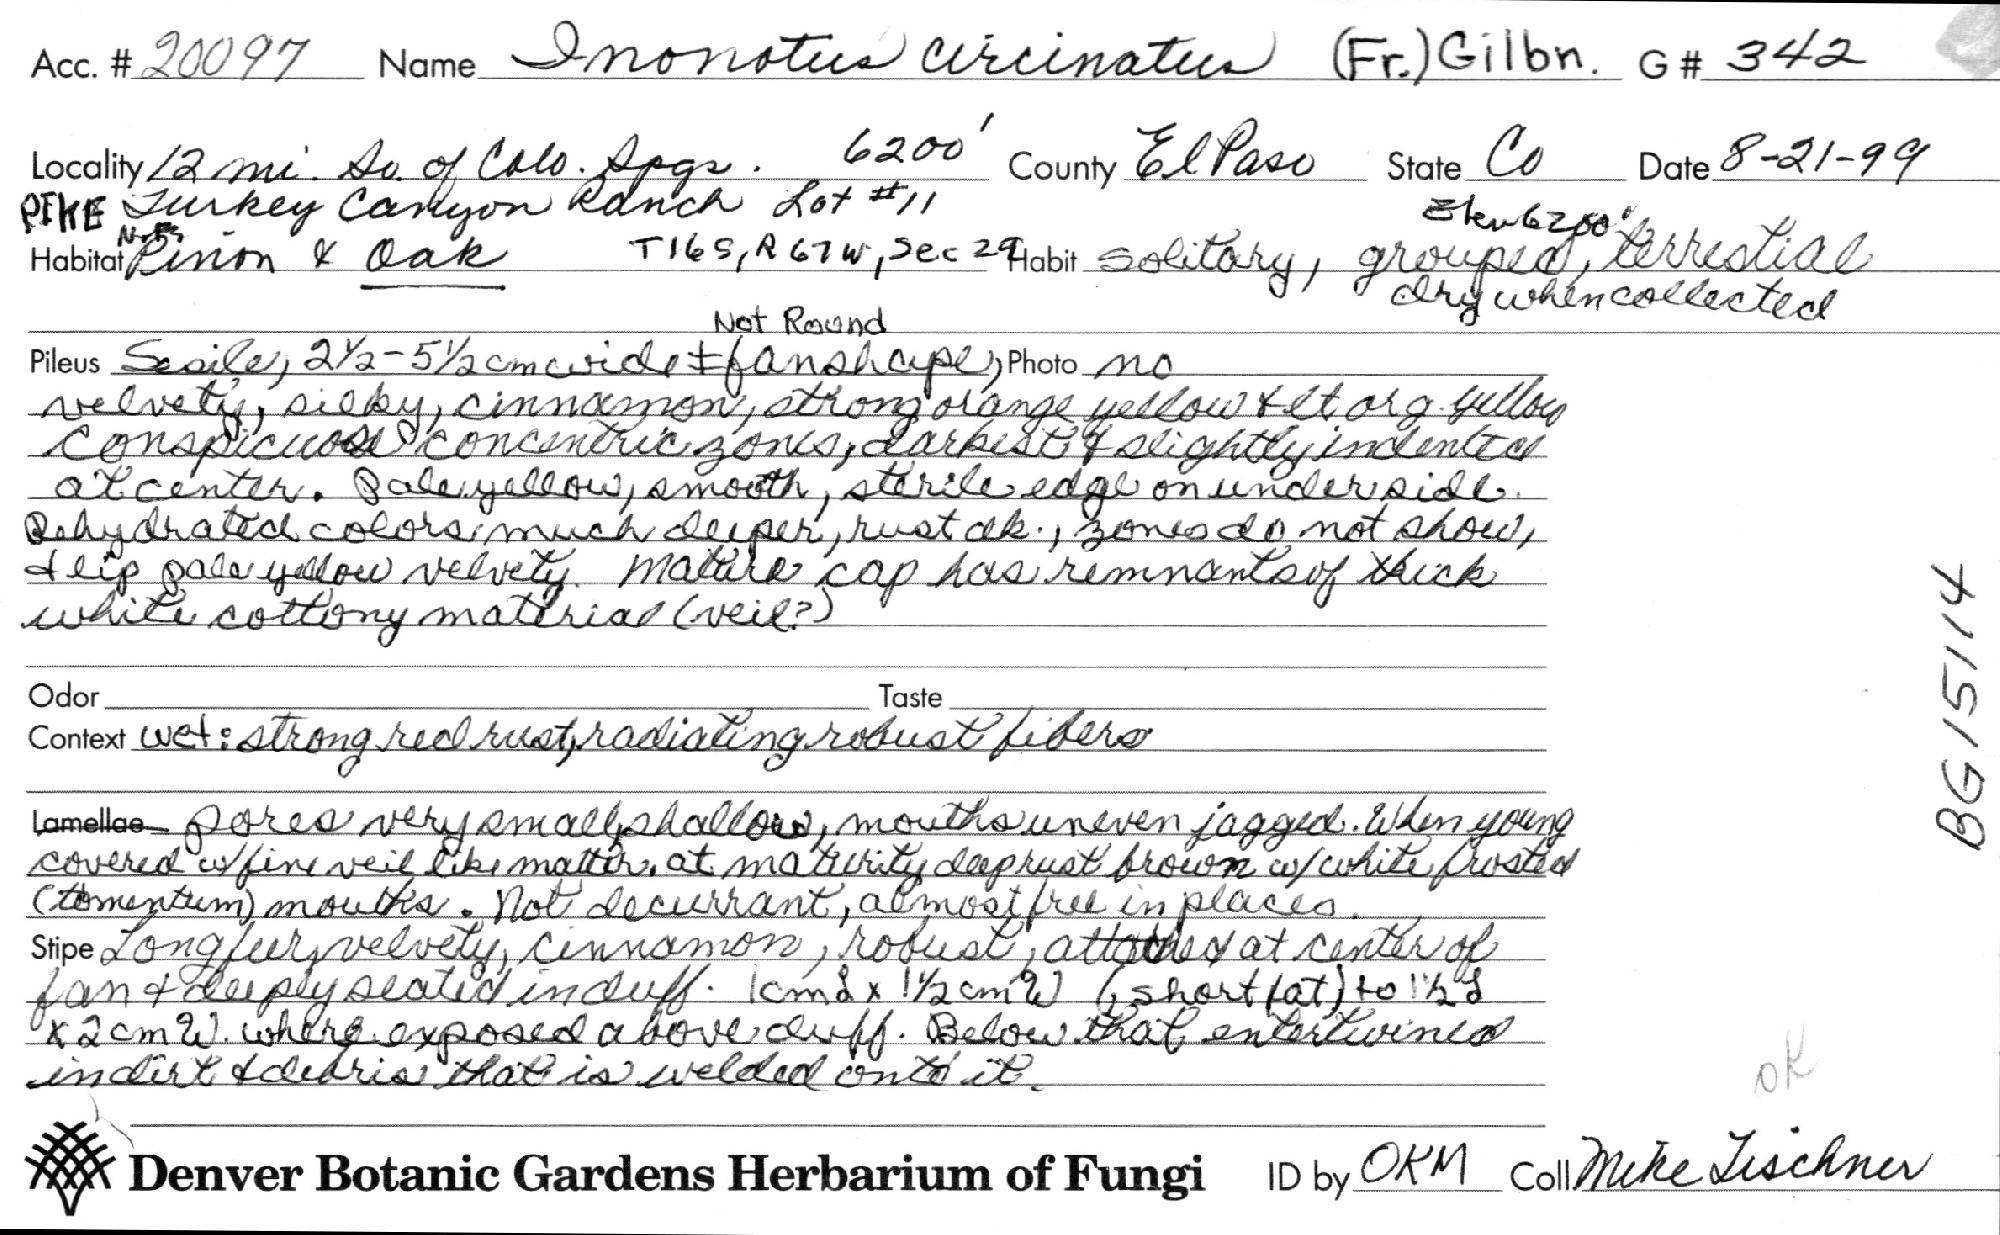 Acc. # 20097 Name Inonotus circinatus (Fr.) Gilbn. G# 342
Locality 12 mi. So. of Colo. Spgs. 6200' County El Paso State Co Date 8-21-99
PIKE Turkey Canyon Ranch Lot #11
Elev 6200'
Habitat Pinion & Oak T16S, R67W, Sec 29 Habit solitary, grouped, terrestial
dry when collected
Not Round
Pileus Sesile, 2½-5½ cm wide ± fanshape, Photo no
velvety, silky, cinnamon, strong orange yellow & lt org. yellow
conspicuous concentric zones, darkest & slightly indented
at center. Pale yellow, smooth, sterile edge on underside.
Rehydrated colors much deeper, rust dk., zones do not show,
& lip pale yellow velvety. Mature cap has remnants of thick
white cottony material (veil?)
Odor Taste
Context wet: strong red rust, radiating robust fibers
Lamellae pores very small, shallow, mouths uneven jagged. When young
covered w/ fine veil like matter. at maturity deep rust brown w/ white frosted
(tomentum) mouths. Not decurrant, almost free in places.
Stipe Long fur, velvety, cinnamon, robust, attached at center of
fan & deeply seated in duff. 1cm L x 1½ cm W (short fat) to 1½ L
x 2 cm W. where exposed above duff. Below that entertwined
in dirt & debris that is welded onto it.
OK
Denver Botanic Gardens Herbarium of Fungi ID by OKM Coll Mike Tischner
BG15114